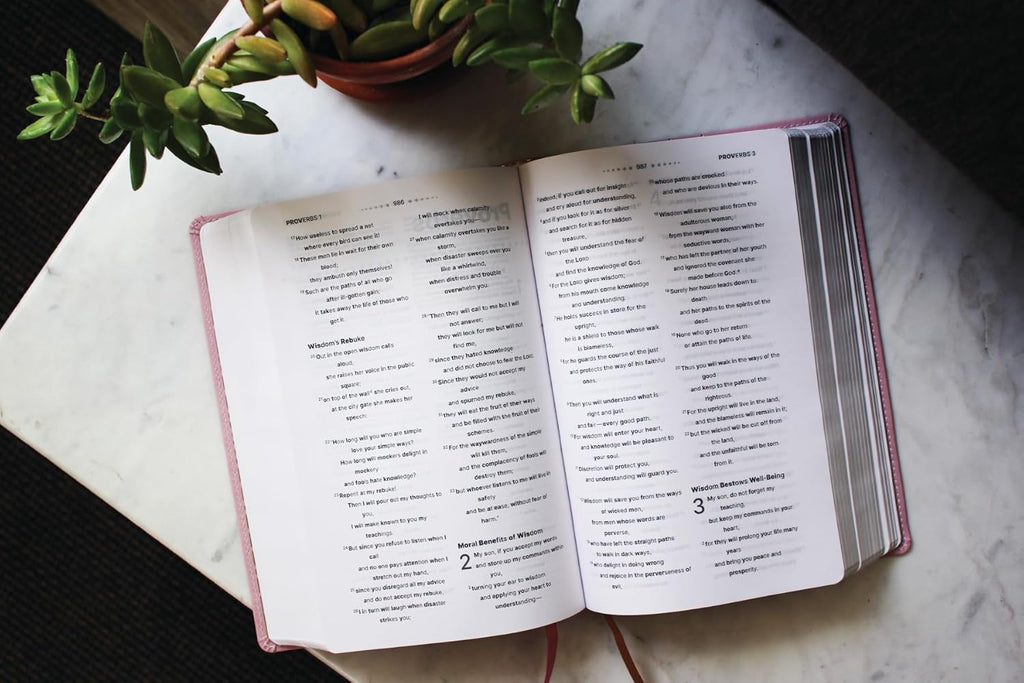 PROVERBS 1
986
17How useless to spread a net
where every bird can see it!
18These men lie in wait for their own
blood;
they ambush only themselves!
19Such are the paths of all who go
after ill-gotten gain;
it takes away the life of those who
get it.
Wisdom's Rebuke
20Out in the open wisdom calls
aloud,
she raises her voice in the public
square;
21on top of the walla she cries out,
at the city gate she makes her
speech:
22"How long will you who are simple
love your simple ways?
How long will mockers delight in
mockery
and fools hate knowledge?
23Repent at my rebuke!
Then I will pour out my thoughts to
you,
I will make known to you my
teachings.
24But since you refuse to listen when I
call
and no one pays attention when I
stretch out my hand,
25since you disregard all my advice
and do not accept my rebuke,
26I in turn will laugh when disaster
strikes you;
I will mock when calamity
overtakes you—
27when calamity overtakes you like a
storm,
when disaster sweeps over you
like a whirlwind,
when distress and trouble
overwhelm you.
28"Then they will call to me but I will
not answer;
they will look for me but will not
find me,
29since they hated knowledge
and did not choose to fear the Lord.
30Since they would not accept my
advice
and spurned my rebuke,
31they will eat the fruit of their ways
and be filled with the fruit of their
schemes.
32For the waywardness of the simple
will kill them,
and the complacency of fools will
destroy them;
33but whoever listens to me will live in
safety
and be at ease, without fear of
harm."
Moral Benefits of Wisdom
2 My son, if you accept my words
and store up my commands within
you,
2turning your ear to wisdom
and applying your heart to
understanding—
987
PROVERBS 3
3indeed, if you call out for insight
and cry aloud for understanding,
4and if you look for it as for silver
and search for it as for hidden
treasure,
5then you will understand the fear of
the Lord
and find the knowledge of God.
6For the Lord gives wisdom;
from his mouth come knowledge
and understanding.
7He holds success in store for the
upright,
he is a shield to those whose walk
is blameless,
8for he guards the course of the just
and protects the way of his faithful
ones.
9Then you will understand what is
right and just
and fair—every good path.
10For wisdom will enter your heart,
and knowledge will be pleasant to
your soul.
11Discretion will protect you,
and understanding will guard you.
12Wisdom will save you from the ways
of wicked men,
from men whose words are
perverse,
13who have left the straight paths
to walk in dark ways,
14who delight in doing wrong
and rejoice in the perverseness of
evil,
15whose paths are crooked
and who are devious in their ways.
16Wisdom will save you also from the
adulterous woman,
from the wayward woman with her
seductive words,
17who has left the partner of her youth
and ignored the covenant she
made before God.a
18Surely her house leads down to
death
and her paths to the spirits of the
dead.
19None who go to her return
or attain the paths of life.
20Thus you will walk in the ways of the
good
and keep to the paths of the
righteous.
21For the upright will live in the land,
and the blameless will remain in it;
22but the wicked will be cut off from
the land,
and the unfaithful will be torn
from it.
Wisdom Bestows Well-Being
3 My son, do not forget my
teaching,
but keep my commands in your
heart,
2for they will prolong your life many
years
and bring you peace and
prosperity.